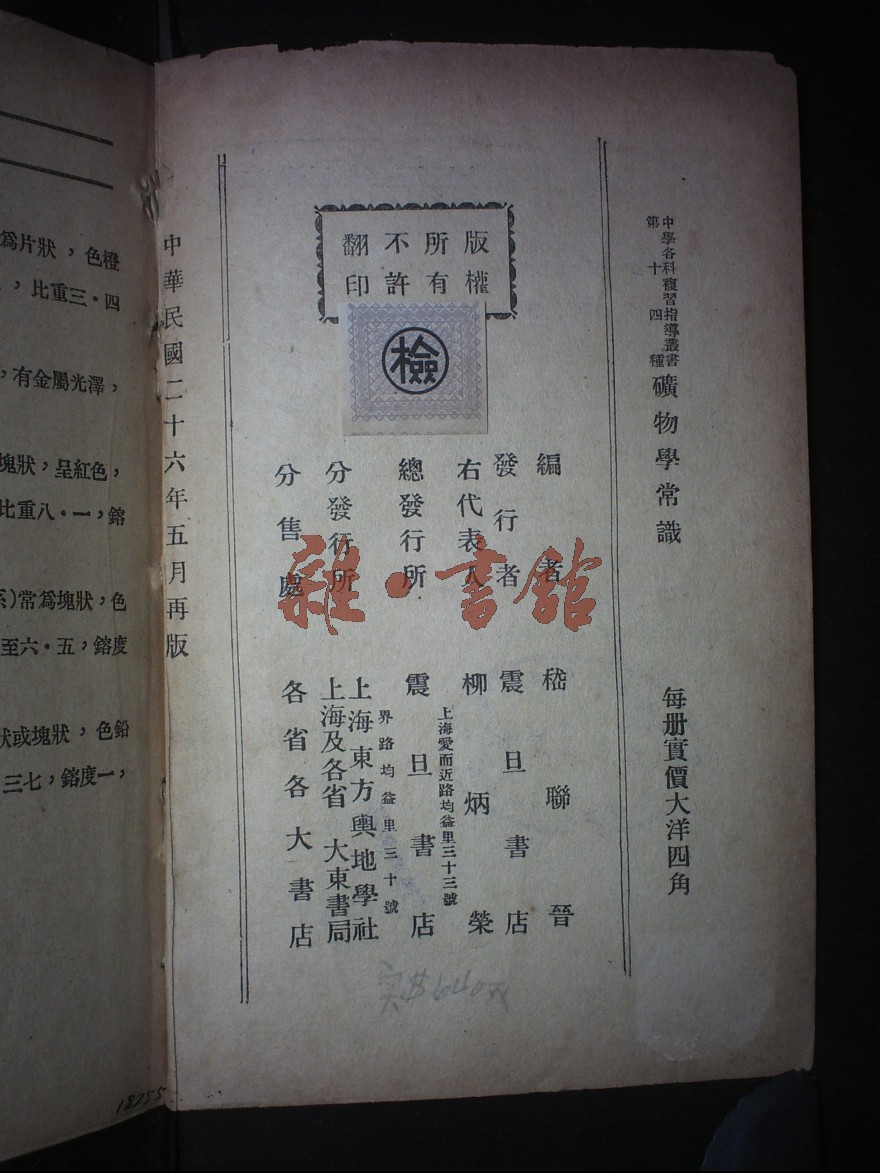 中學各科複習指導叢書
第十四種
礦物學常識
每册實價大洋四角
版權
所有
不許
翻印
檢
編者 嵇聯晉
發行者 震旦書店
右代表人 柳炳榮
總發行所 震旦書店
上海愛而近路均益里三十三號
分發行所 上海東方輿地學社
界路均益里三十號
上海及各省大東書局
分售處 各省各大書店
中華民國二十六年五月再版
雜·書館
為片狀，色橙
，比重三·四
，有金屬光澤，
塊狀，呈紅色，
比重八·一，鎔
系)常為塊狀，色
至六·五，鎔度
狀或塊狀，色鉛
三七，鎔度一，
18255